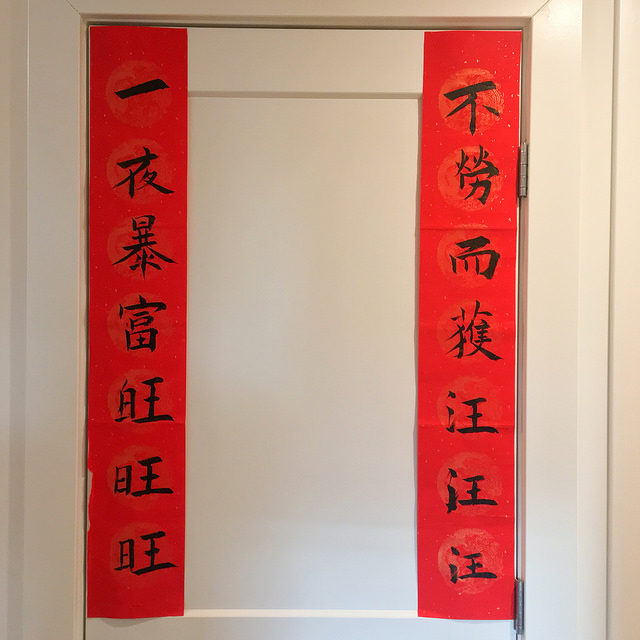 不勞而獲汪汪汪
一夜暴富旺旺旺